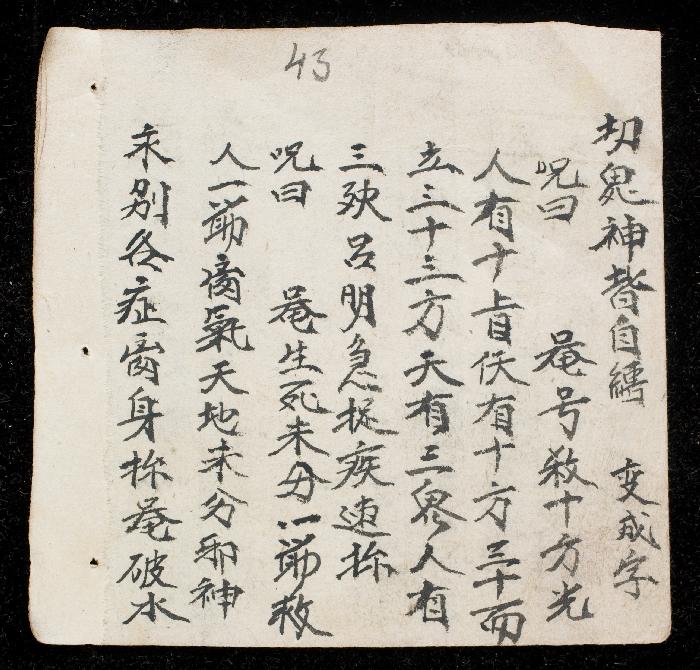 43
刧鬼神皆自縛 变成字
呪曰 唵号殺十方光
人有十眉伏有十方三十而
去三十三方天有三鬼人有
三殃吕明急捉疾速捈
呪曰 唵生死未分一節救
人一節離氣天地未分邪神
未别各症离身捈唵破水